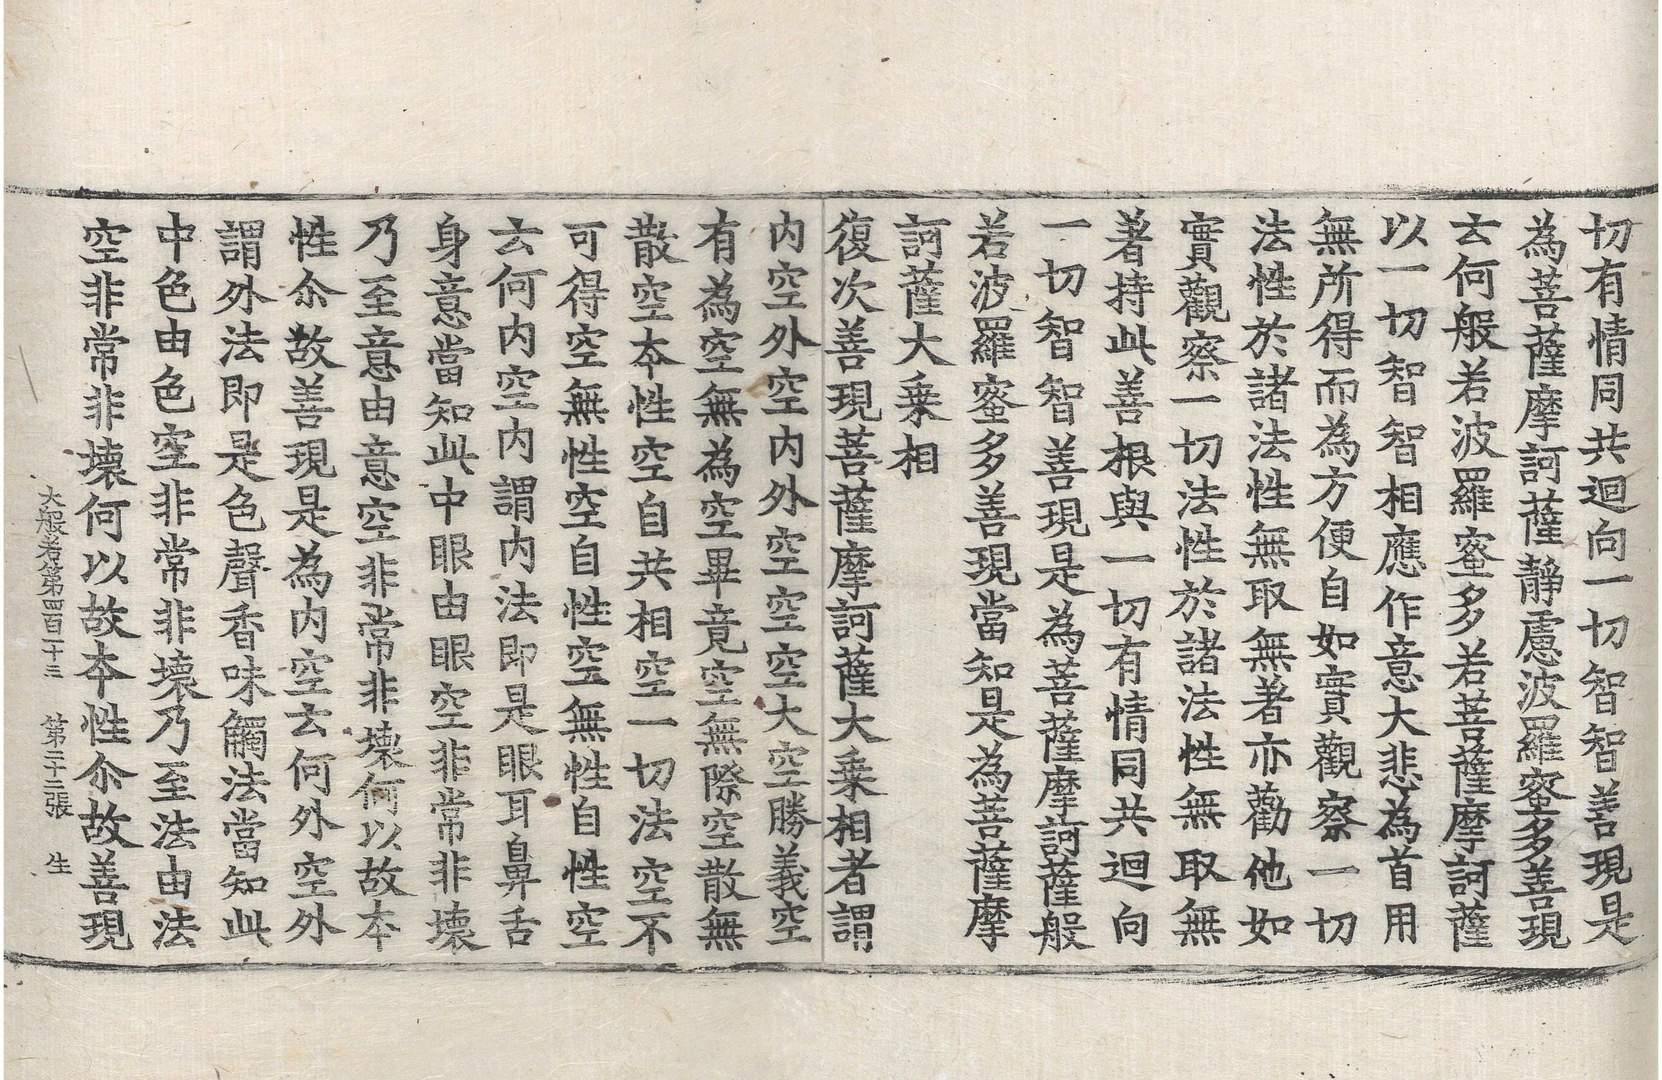 切有情同共迴向一切智智善現是
為菩薩摩訶薩靜慮波羅蜜多善現
云何般若波羅蜜多若菩薩摩訶薩
以一切智智相應作意大悲為首用
無所得而為方便自如實觀察一切
法性於諸法性無取無著亦勸他如
實觀察一切法性於諸法性無取無
著持此善根與一切有情同共迴向
一切智智善現是為菩薩摩訶薩般
若波羅蜜多善現當知是為菩薩摩
訶薩大乗相
復次善現菩薩摩訶薩大乗相者謂
内空外空内外空空空大空勝義空
有為空無為空畢竟空無際空散無
散空本性空自共相空一切法空不
可得空無性空自性空無性自性空
云何内空内謂内法即是眼耳鼻舌
身意當知此中眼由眼空非常非壞
乃至意由意空非常非壞何以故本
性尒故善現是為内空云何外空外
謂外法即是色聲香味觸法當知此
中色由色空非常非壞乃至法由法
空非常非壞何以故本性尒故善現
大般若第四百一十三 第二十二張 生